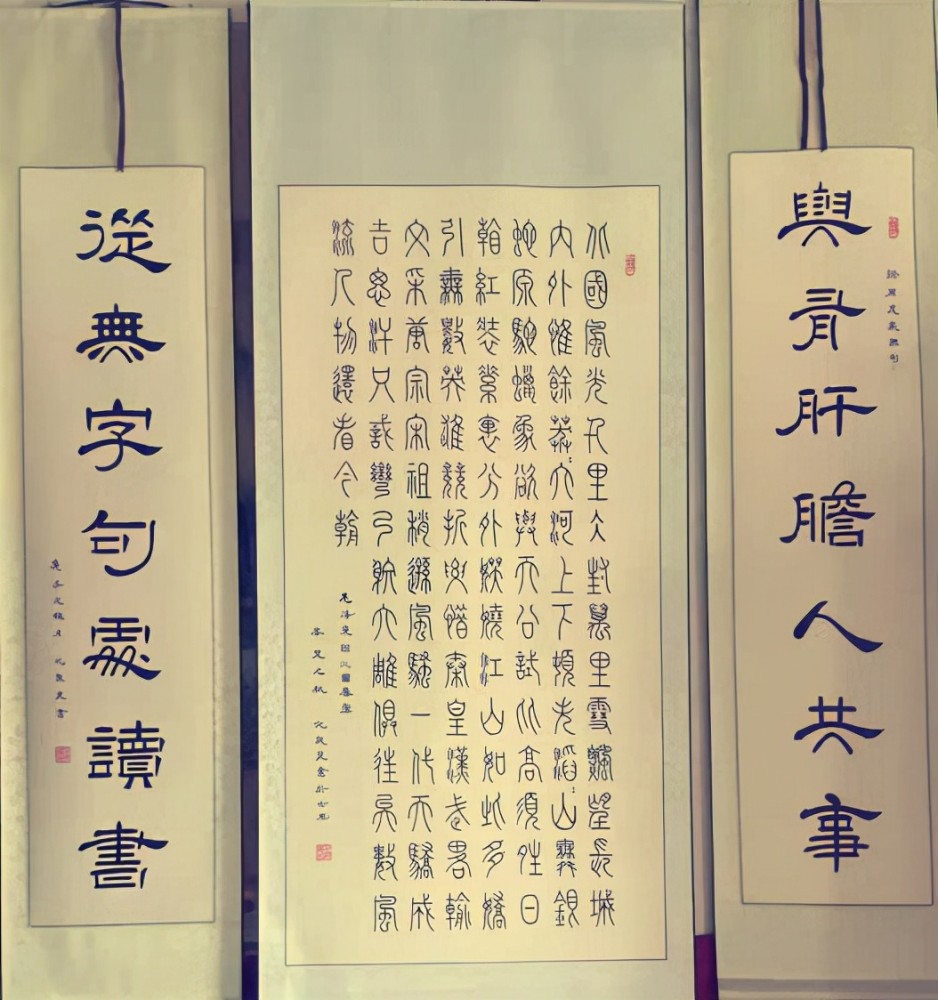 與有肝膽人共事
錄周恩來聯句
北國風光千里冰封萬里雪飄望長城
內外惟餘莽々大河上下頓失滔々山舞銀
蛇原馳蠟象欲與天公試比高須晴日
看紅裝素裹分外妖嬈江山如此多嬌
引無數英雄競折腰惜秦皇漢武略輸
文采唐宗宋祖稍遜風騷一代天驕成
吉思汗只識彎弓射大雕俱往矣數風
流人物還看今朝
從無字句處讀書